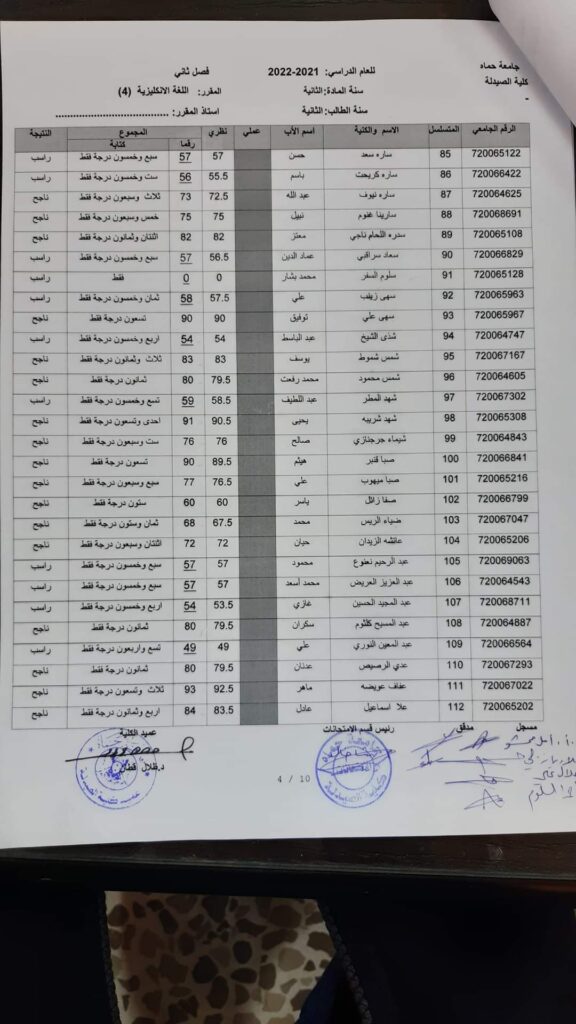 جامعة حماه
كلية الصيدلة
-
للعام الدراسي: 2021-2022 فصل ثاني
سنة المادة: الثانية المقرر: اللغة الانكليزية (4)
سنة الطالب: الثانية استاذ المقرر: ......................................
الرقم الجامعي المتسلسل الاسم والكنية اسم الأب عملي نظري المجموع النتيجة
رقما كتابة
720065122 85 ساره سعد حسن 57 57 سبع وخمسون درجة فقط راسب
720066422 86 ساره كريحت باسم 55.5 56 ست وخمسون درجة فقط راسب
720064625 87 ساره نيوف عبد الله 72.5 73 ثلاث وسبعون درجة فقط ناجح
720068691 88 سارينا غنوم نبيل 75 75 خمس وسبعون درجة فقط ناجح
720065108 89 سدره اللحام ناجي معتز 82 82 اثنتان وثمانون درجة فقط ناجح
720066829 90 سعاد سراقبي عماد الدين 56.5 57 سبع وخمسون درجة فقط راسب
720065128 91 سلوم السفر محمد بشار 0 0 فقط راسب
720065963 92 سهى زينب علي 57.5 58 ثمان وخمسون درجة فقط راسب
720065967 93 سهى علي توفيق 90 90 تسعون درجة فقط ناجح
720064747 94 شذى الشيخ عبد الباسط 54 54 اربع وخمسون درجة فقط راسب
720067167 95 شمس شموط يوسف 83 83 ثلاث وثمانون درجة فقط ناجح
720064605 96 شمس محمود محمد رفعت 79.5 80 ثمانون درجة فقط ناجح
720067302 97 شهد المطر عبد اللطيف 58.5 59 تسع وخمسون درجة فقط راسب
720065308 98 شهد شريبه يحيى 90.5 91 احدى وتسعون درجة فقط ناجح
720064843 99 شيماء جرجنازي صالح 76 76 ست وسبعون درجة فقط ناجح
720066841 100 صبا قنبر هيثم 89.5 90 تسعون درجة فقط ناجح
720065216 101 صبا ميهوب علي 76.5 77 سبع وسبعون درجة فقط ناجح
720066799 102 صفا زائل ياسر 60 60 ستون درجة فقط ناجح
720067047 103 ضياء الريس محمد 67.5 68 ثمان وستون درجة فقط ناجح
720065206 104 عائشه الزيدان حيان 72 72 اثنتان وسبعون درجة فقط ناجح
720069063 105 عبد الرحيم نعنوع محمود 57 57 سبع وخمسون درجة فقط راسب
720064543 106 عبد العزيز العريض محمد أسعد 57 57 سبع وخمسون درجة فقط راسب
720068711 107 عبد المجيد الحسين غازي 53.5 54 اربع وخمسون درجة فقط راسب
720064887 108 عبد المسيح كلثوم سكران 79.5 80 ثمانون درجة فقط ناجح
720066564 109 عبد المعين النوري علي 49 49 تسع واربعون درجة فقط راسب
720067293 110 عدي الرصيص عدنان 79.5 80 ثمانون درجة فقط ناجح
720067022 111 عفاف عويضه ماهر 92.5 93 ثلاث وتسعون درجة فقط ناجح
720065202 112 علا اسماعيل عادل 83.5 84 اربع وثمانون درجة فقط ناجح
مسجل مدقق رئيس قسم الامتحانات عميد الكلية
د.طلال قطان
4 / 10